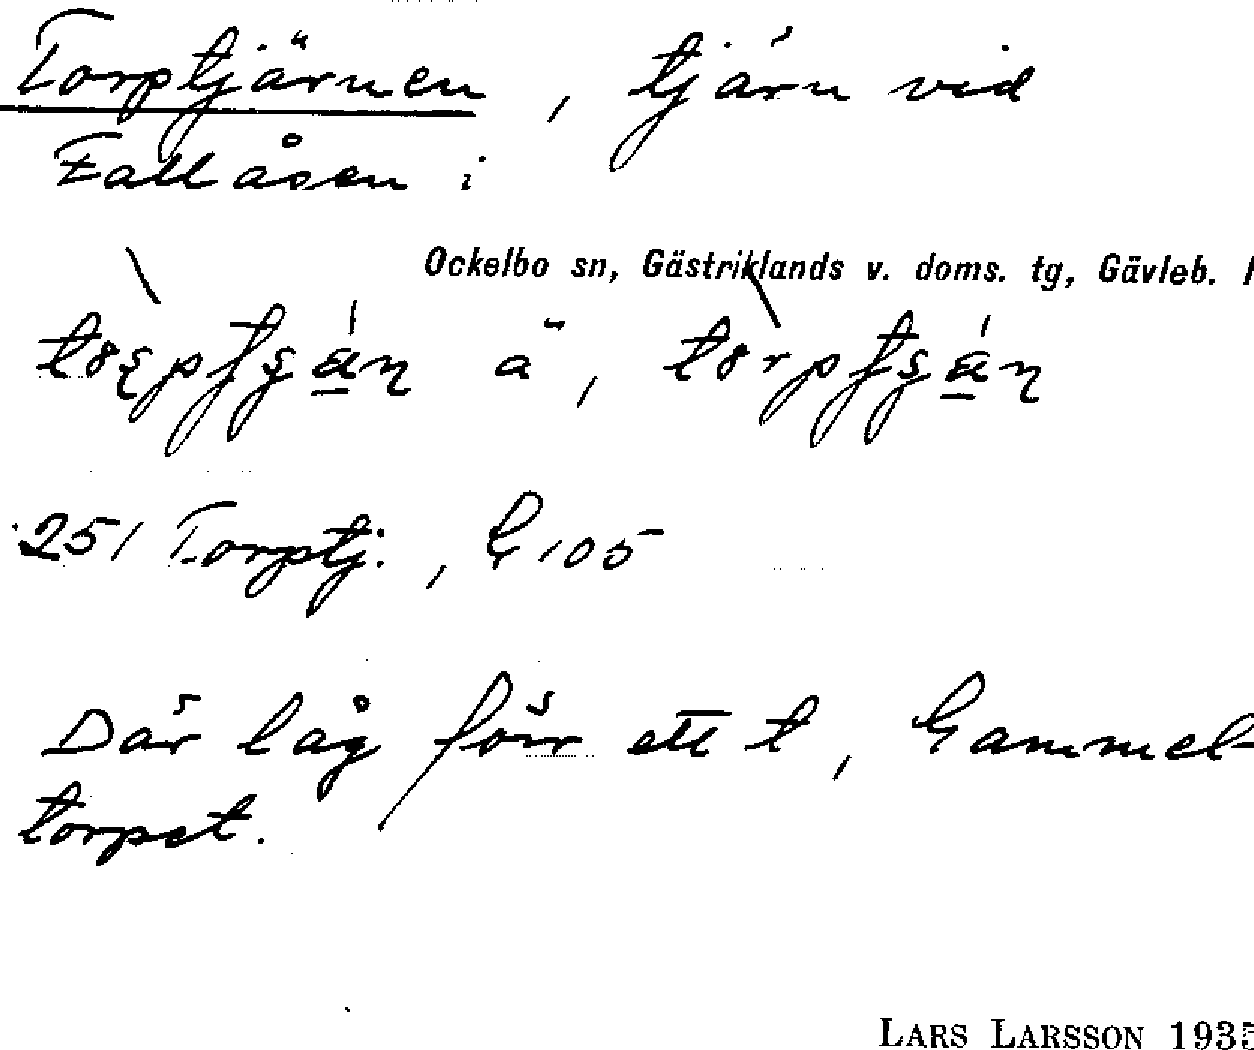 Torptjärnen, tjärn vid
Fallåsen i
Ockelbo sn, Gästriklands v. doms. tg, Gävleb.
251 Torptj., G 105
Där låg förr ett t, Gammel-
torpet.
LARS LARSSON 1935